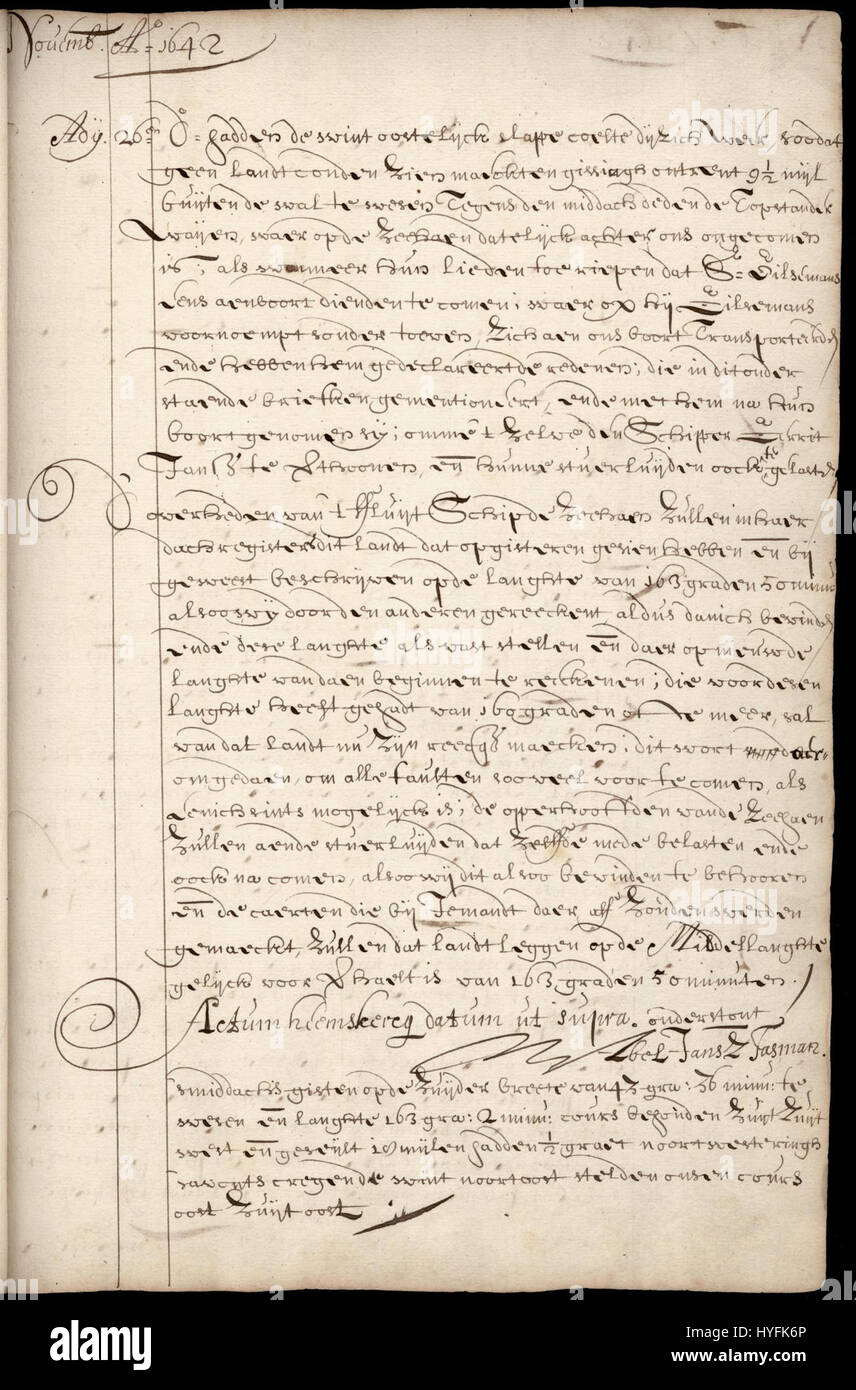 Novemb. Aº 1642
Ady. 26en dº hadden de wint oostelijck slape coelte dijzich weer, soo dat
geen landt conden zien maeckten gissingh ontrent 9½ mijl
buijten de wal te wesen Tegens den middach deden de Topstander
waijen, waer op de Zeehaen datelijck achter ons ongecomen
is; als wanneer hun lieden toe riepen dat Sr Gilsemans
eens aen boort dienden te comen; waer op hij Gilsemans
voornoempt sonder toeven, zich aen ons boort Transporteerde
ende hebben hem gedeclareert de redenen; die in dit onder
staende briefken gementioneert, ende met hem na hun
boort genomen sy; omme 't zelve den Schipper Gerrit
Jansz te verthoonen, en hunne stuerluijden oock te gelasten
D overheden van 't fluijt Schip de Zeehaen zullen in haer
dachregisters dit landt dat op gisteren gesien hebben en bij
geweest beschrijven op de langhte van 163 graden 50 minu
alsoo wy door den anderen gereeckent aldus danich bevinden
ende dese langhte als vast stellen en daer op nieuwde
langhte van daen beginnen te reeckenen; die voor desen
langhte heeft gehadt van 160 graden ofte meer, sal
van dat landt nu zijn reecqg maecken; dit wort daer-
om gedaen, om alle faulten soo veel voor te comen, als
eenichsints mogelijck is; de operhoofden vande Zeehaen
zullen aende stuerluijden dat zelffde mede belasten ende
oock na comen, alsoo wij dit alsoo bevinden te behooren
en de caerten die bij Jemandt daer aff zouden werden
gemaeckt, zullen dat landt leggen op de Middellanghte
gelijck voor verhaelt is van 163 graden 50 minuten.
Actum heemskercq datum ut supra. onderstont
Abel Jansz Tasman.
smiddachs gisten op de zuijder breete van 43 gra: 36 minu: te
wesen en langhte 163 gra: 2 minu: cours behouden zuijt zuijt
west en geseijlt 18 mijlen hadden ½ graet noortwesteringh
savonts cregen de wint noortoost stelden onsen cours
oost zuijt oost
alamy
Image ID: HYFK6P
www.alamy.com